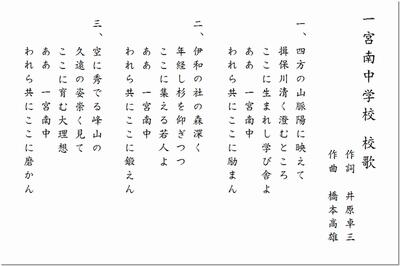 一宮南中学校 校歌
作詞 井原卓三
作曲 橋本高雄
一、四方の山脈陽に映えて
揖保川清く澄むところ
ここに生まれし学び舎よ
ああ 一宮南中
われら共にここに励まん
二、伊和の社の森深く
年経し杉を仰ぎつつ
ここに集える若人よ
ああ 一宮南中
われら共にここに鍛えん
三、空に秀でる峰山の
久遠の姿崇く見て
ここに育む大理想
ああ 一宮南中
われら共にここに磨かん